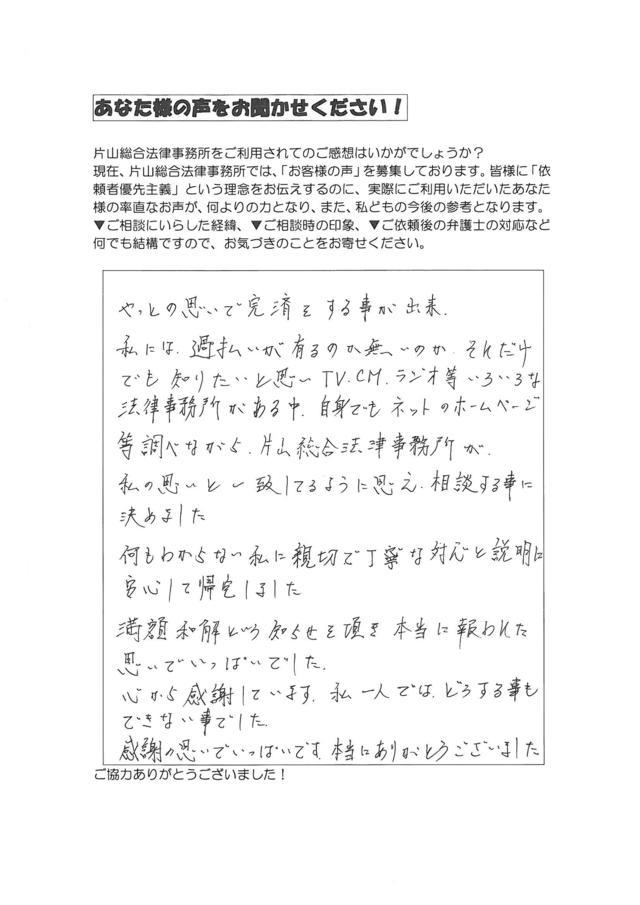 あなた様の声をお聞かせください!
片山総合法律事務所をご利用されてのご感想はいかがでしょうか?
現在、片山総合法律事務所では、「お客様の声」を募集しております。皆様に「依
頼者優先主義」という理念をお伝えするのに、実際にご利用いただいたあなた
様の率直なお声が、何よりの力となり、また、私どもの今後の参考となります。
▼ご相談にいらした経緯、▼ご相談時の印象、▼ご依頼後の弁護士の対応など
何でも結構ですので、お気づきのことをお寄せください。
やっとの思いで完済をする事が出来、
私には、過払いが有るのか無いのか、それだけ
でも知りたいと思いTV.CM.ラジオ等いろいろな
法律事務所がある中、自身でもネットのホームページ
等調べながら、片山総合法律事務所が、
私の思いと一致してるように思え、相談する事に
決めました
何もわからない私に親切で丁寧な対応と説明に
安心して帰宅しました
満額和解という知らせを頂き本当に報われた
思いでいっぱいでした。
心から感謝しています。私一人では、どうする事も
できない事でした。
感謝の思いでいっぱいです。本当にありがとうございました
ご協力ありがとうございました!